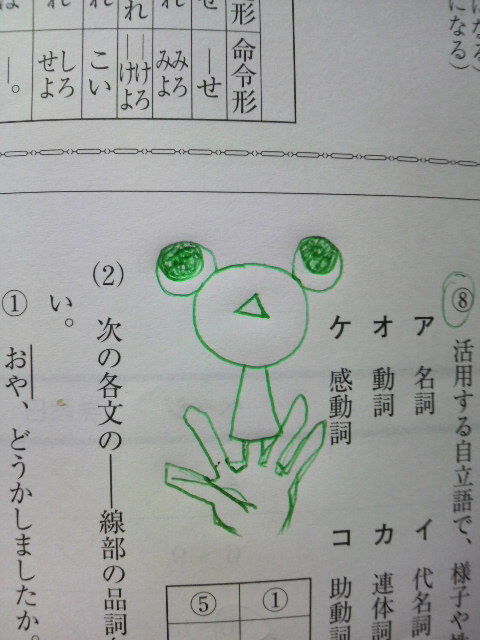 になる）
になる）
形
命令形
せ
―せ
れ
みろ
みよ
れ
―けろ
―けよ
れ
こい
れ
しろ
せよ
は
―。
⑧ 活用する自立語で、様子や
ア 名詞
イ 代名詞
オ 動詞
カ 連体詞
ケ 感動詞
コ 助動詞
①
⑤
(2) 次の各文の――線部の品詞
い。
① おや、どうかしましたか。